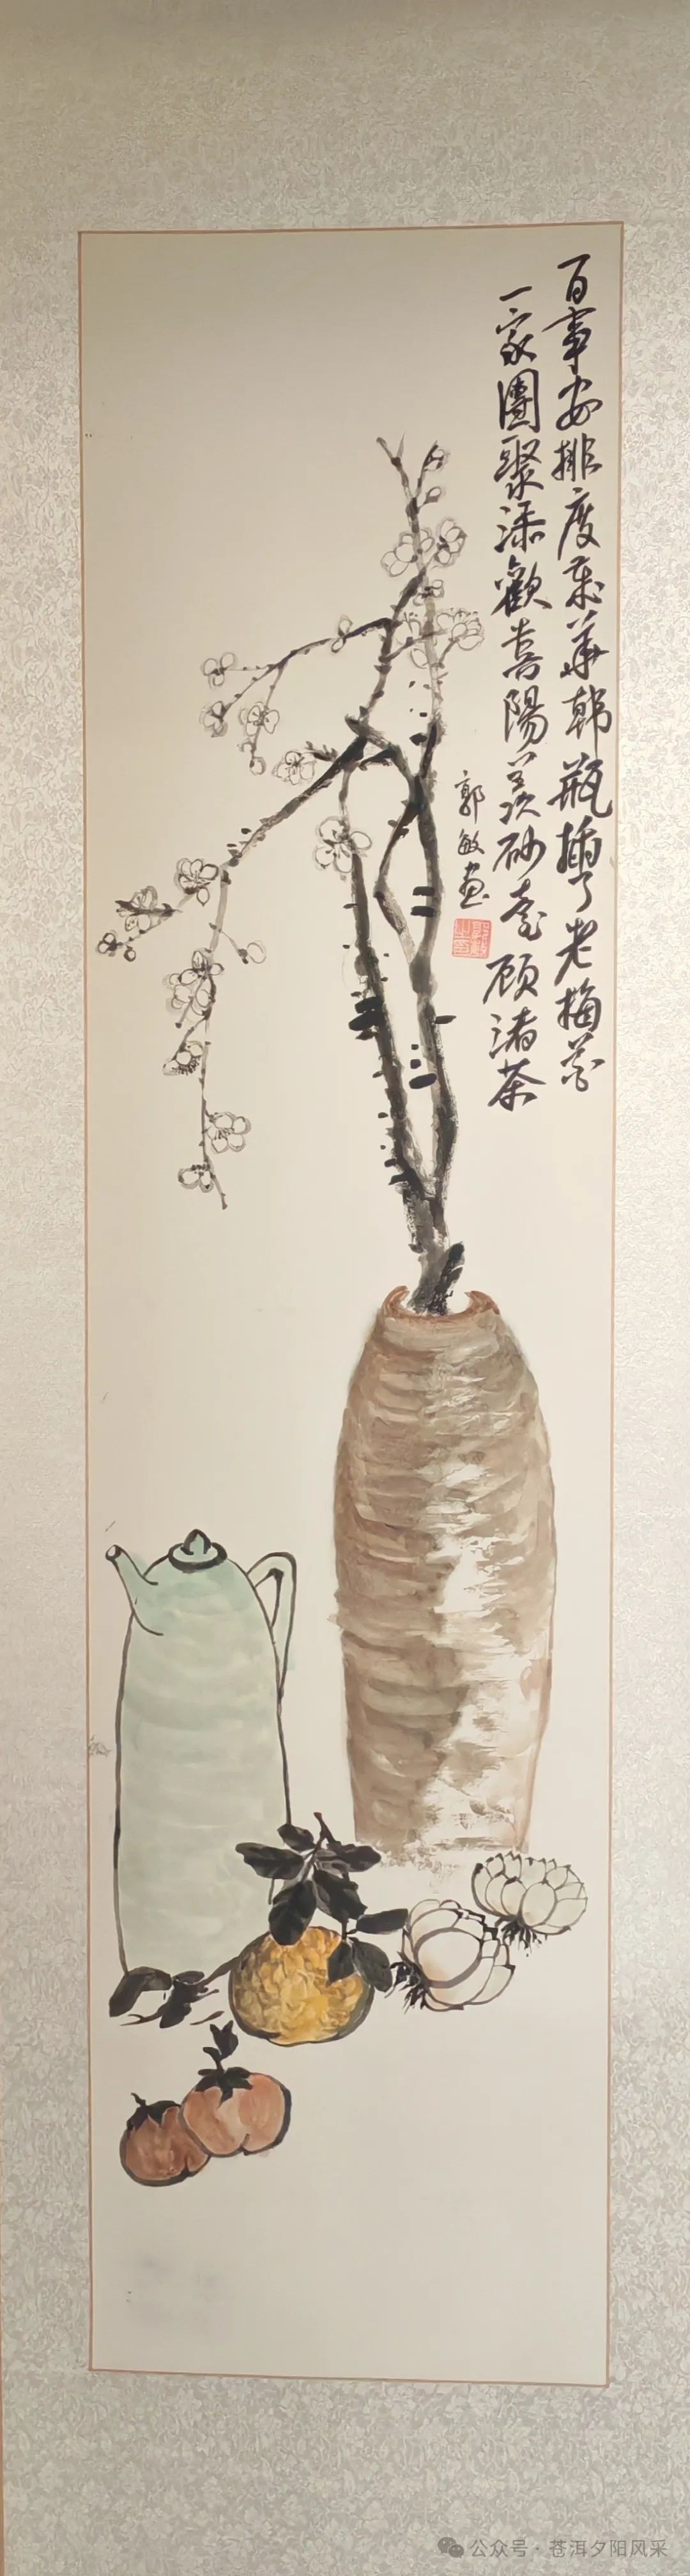 百事安排度歲華韩瓶插了老梅花
一家團聚添歡喜陽羡砂壶顾渚茶
郭敏画
公众号·苍洱夕阳风采